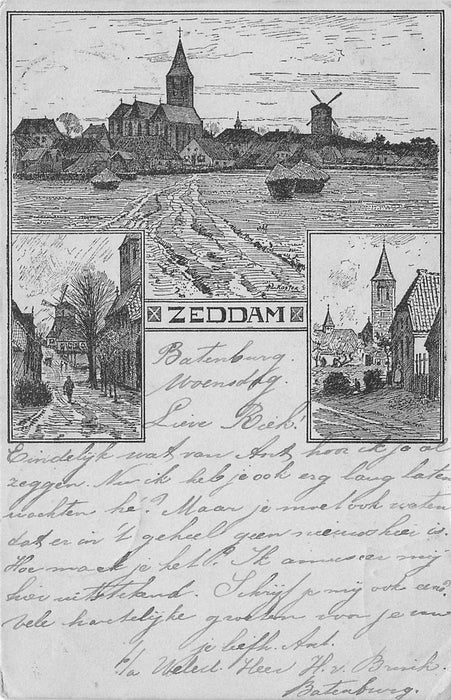 ZEDDAM
Batenburg.
Woensdag.
Lieve Riek.
Eindelijk wat van Ant, hoor ik je al
zeggen. Nu ik heb je ook erg lang laten
wachten hé? Maar je moet ook weten
dat er in 't geheel geen nieuws hier is.
Hoe maak je het? Ik amuseer mij
hier uitstekend. Schrijf mij ook eens?
vele hartelijke groeten voor je van
je liefh. Ant.
Heer H. v.
Batenburg.